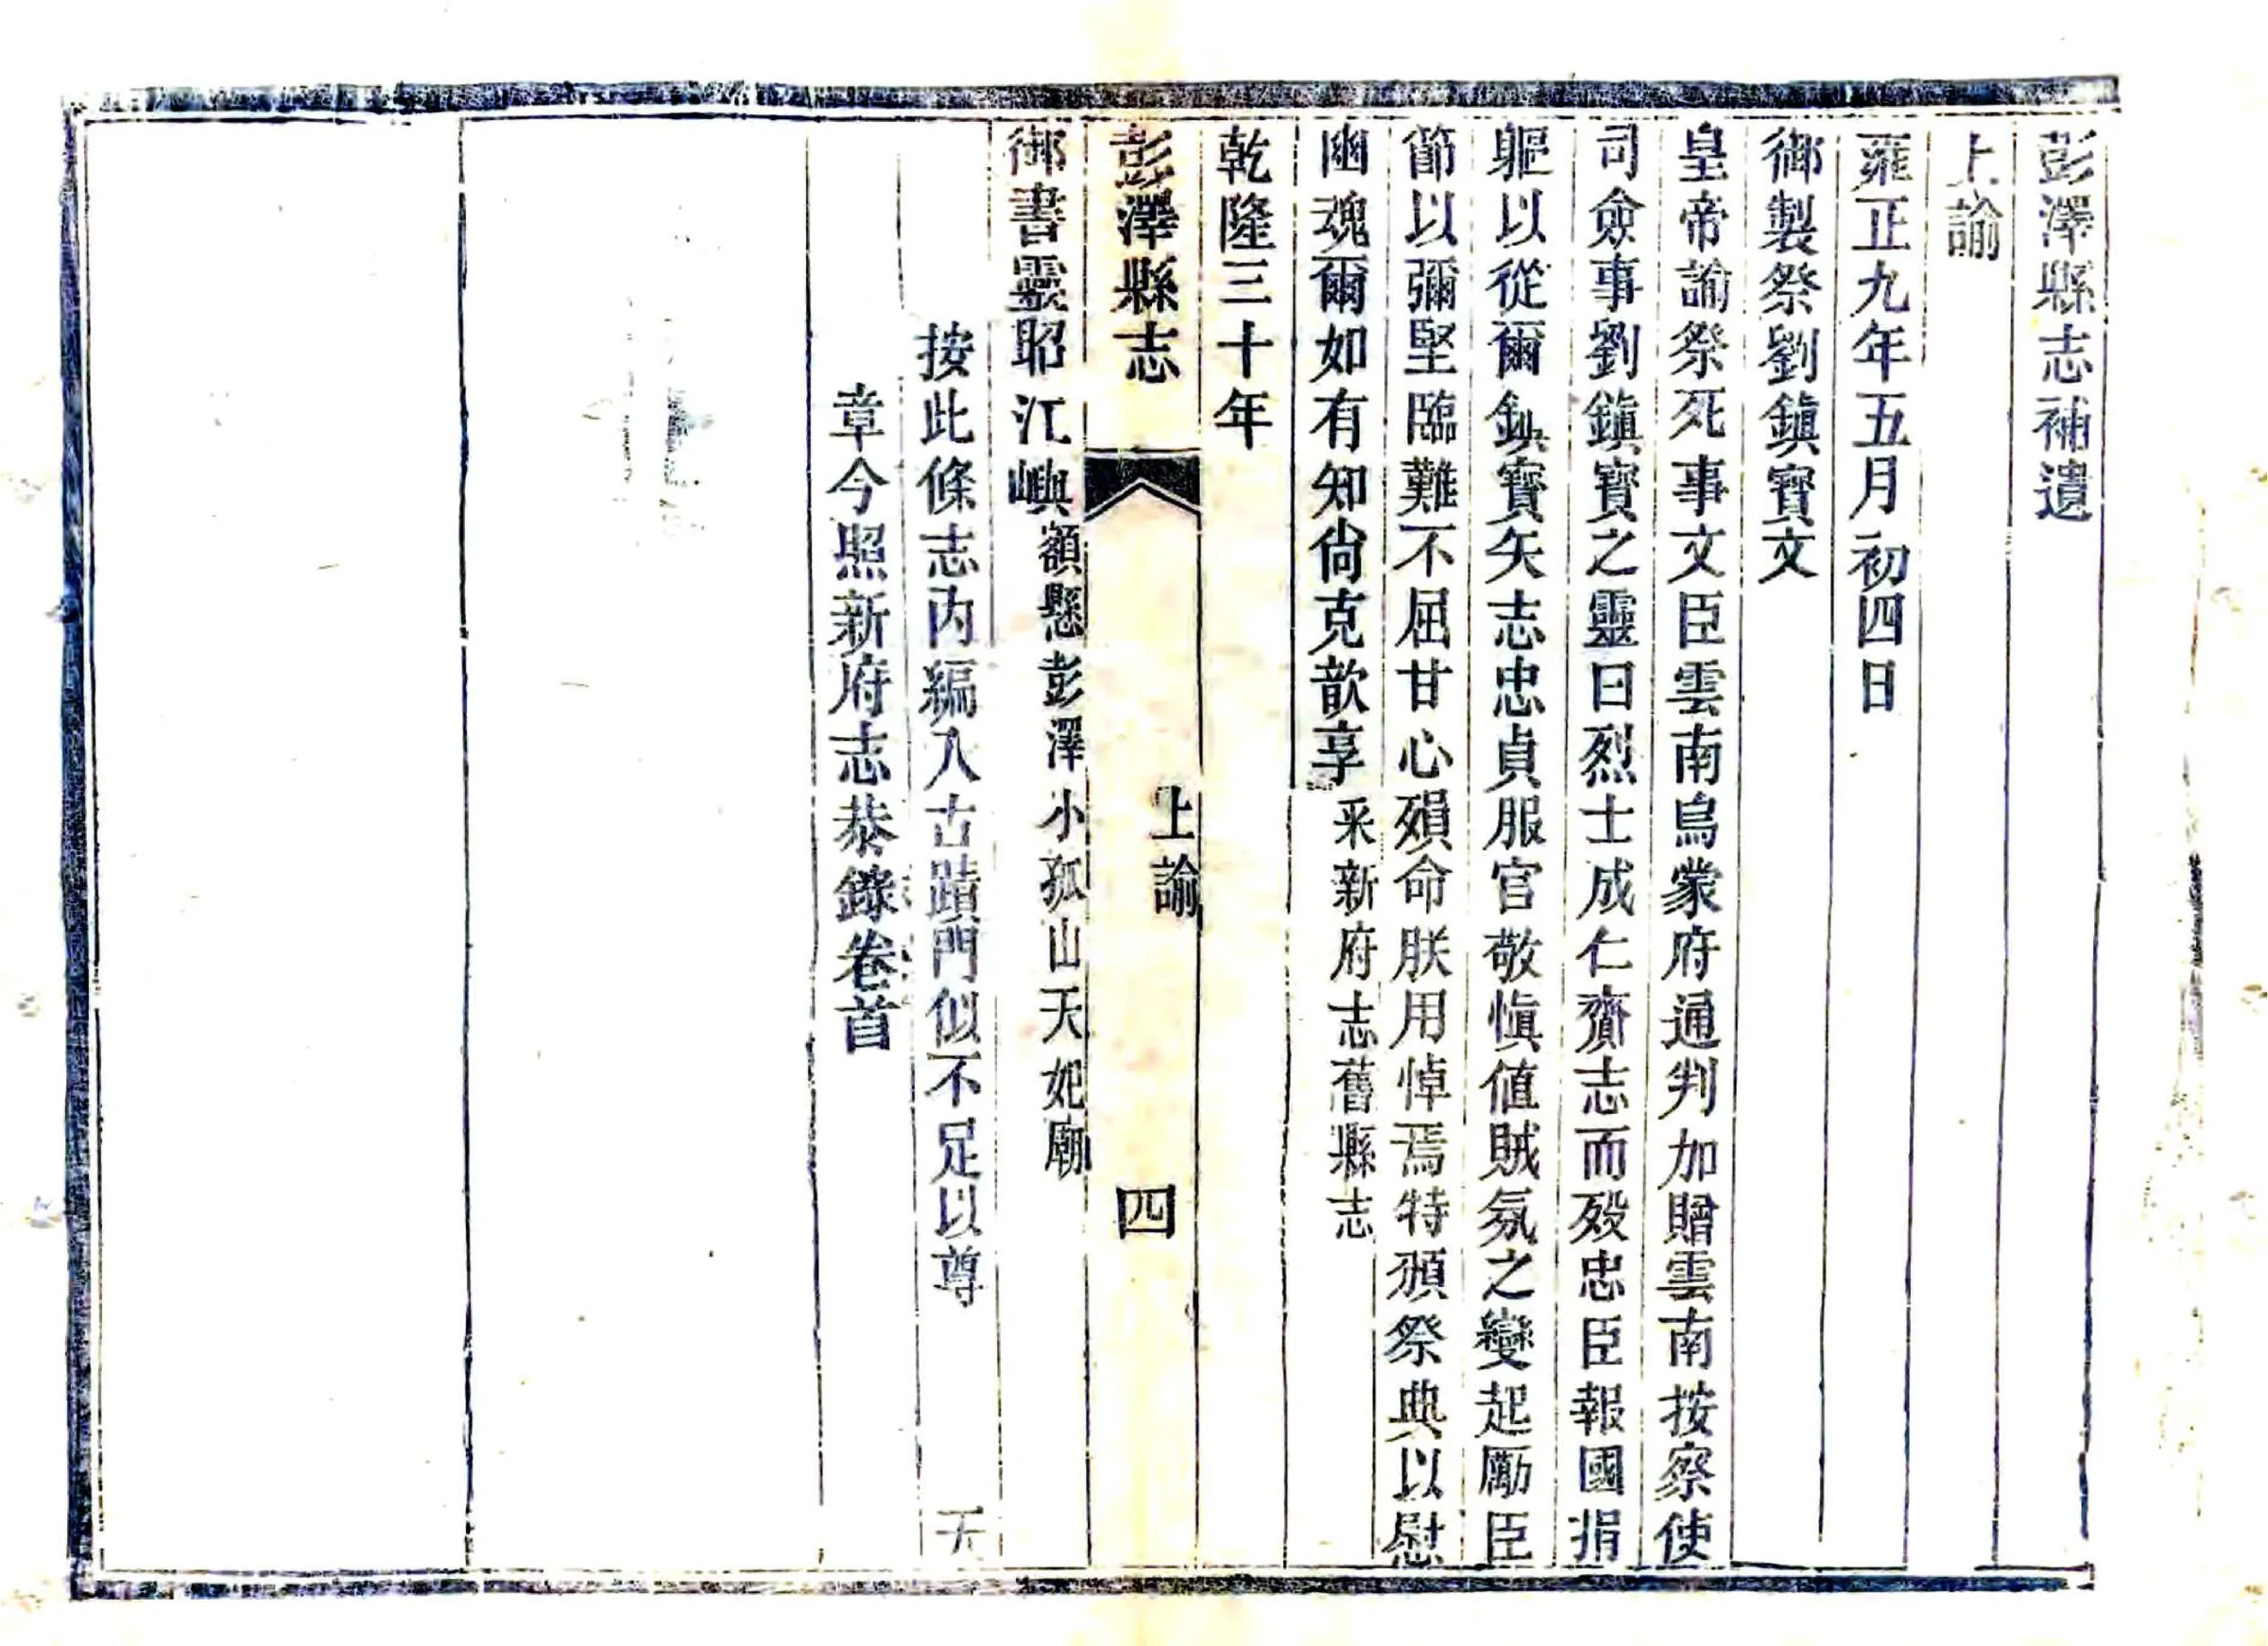 彭澤縣志補遺
上諭
雍正九年五月初四日
御製祭劉鎭寶文
皇帝諭祭死事文臣雲南烏蒙府通判加贈雲南按察使
司僉事劉鎭寶之靈曰烈士成仁齎志而歿忠臣報國捐
軀以從爾鎭寶矢志忠貞服官敬愼値賊氛之變起勵臣
節以彌堅臨難不屈甘心殞命朕用悼焉特頒祭典以慰
幽魂爾如有知尙克歆享采新府志舊縣志
乾隆三十年
彭澤縣志 上諭 四
御書靈昭江嶼額懸彭澤小孤山天妃廟
按此條志内編入古蹟門似不足以尊 天
章今照新府志恭錄卷首